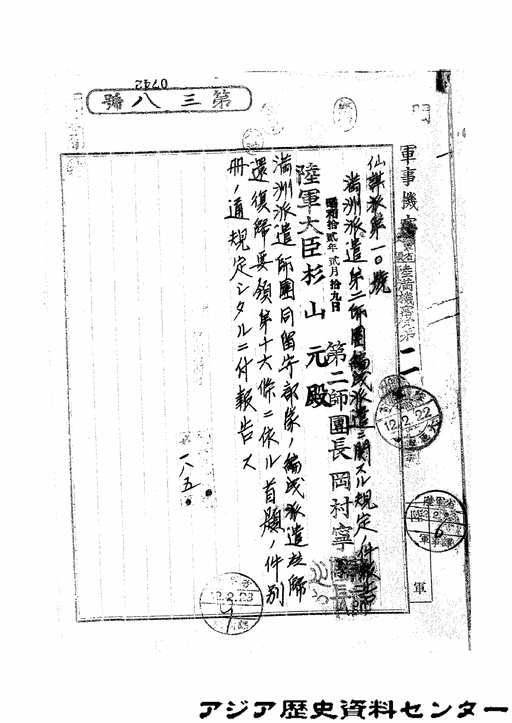 0742
第三八號
軍事機密
陸滿機密
仙謀派第一〇號
滿洲派遣第二師團編成派遣ニ關スル規定ノ件報告
昭和拾貳年貳月拾九日
第二師團長岡村寧
陸軍大臣杉山元殿
滿洲派遣師團同留守部隊ノ編成派遣並歸
還復歸要領第十六條ニ依ル首題ノ件別
冊ノ通規定シタルニ付報告ス
一八五
12.2.22
陸軍省
12.2.23
軍
アジア歴史資料センター